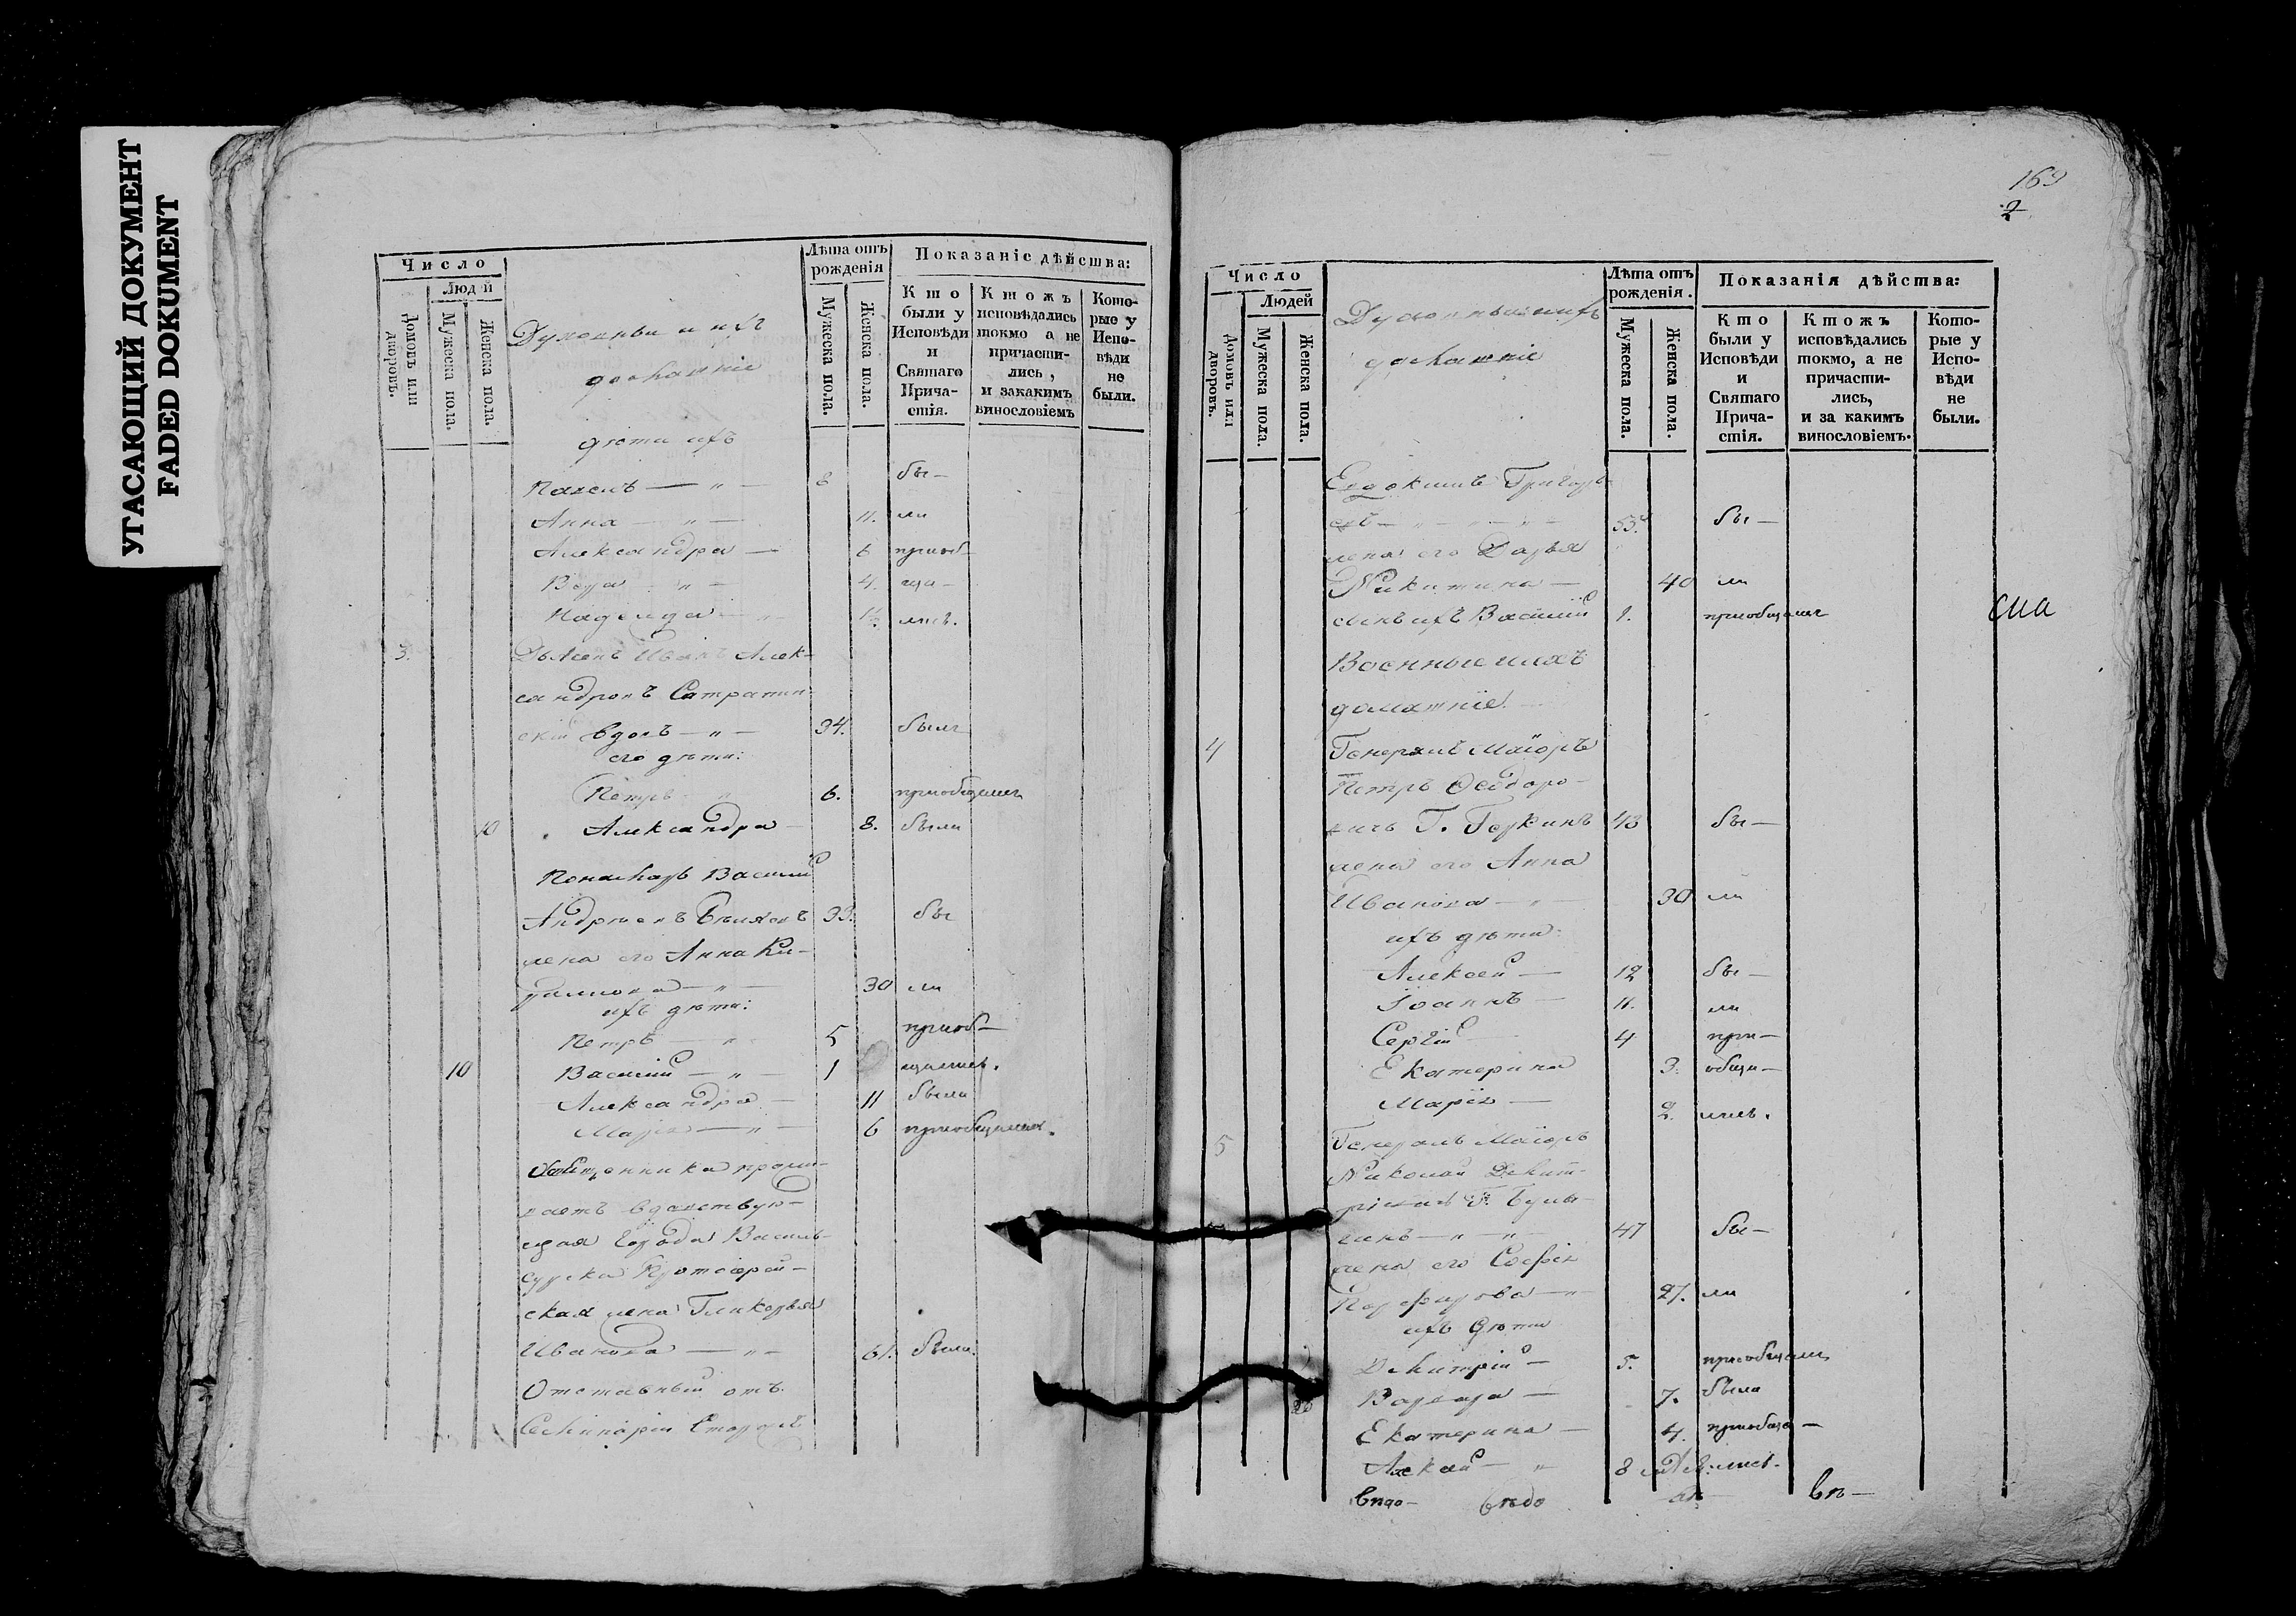 УГАСАЮЩИЙ ДОКУМЕНТ
FADED DOKUMENT
Число
Людей
Домовъ или дворовъ.
Мужеска пола.
Женска пола.
Духовныи и ихъ
домашніе
Лѣта отъ рожденія
Мужеска пола.
Женска пола.
Показаніе дѣйства:
Кто были у Исповѣди и Святаго Прича-стія.
Ктожъ исповѣдались токмо а не причасти-лись, и закакимъ винословіемъ
Кото-рые у Испо-вѣди не были.
дѣти ихъ
Павелъ — „ — 8 бы-
Анна — „ — 11. ли
Александра — 6 приоб-
Вера — „ — 4. ща-
Надежда — „ 1½. лись.
3. Дьяконъ Иванъ Алек-
сандровъ Сатрапин-
скій вдовъ — „ — 34. былъ
его дѣти:
Петръ — „ 6. приобщенъ
10 Александра — 8. были
Пономарь Василий
Андреевъ Беляевъ 33. бы
жена его Анна Ки-
рилова — „ — 30 ли
ихъ дѣти:
Петръ — „ 5 приоб-
10 Василий — „ — 1 щались.
Александра — 11 были
Марья — „ — 6 приобщилась.
пропи-
ваетъ вдовствую-
щая города Василь-
сурска Протоіерей-
ская жена Гликерья
Иванова — „ — 61. была.
Отставный отъ
Семинаріи Сторожъ
169
2
Число
Людей
Домовъ или дворовъ.
Мужеска пола.
Женска пола.
Духовныи и ихъ
домашніе
Лѣта отъ рожденія.
Мужеска пола.
Женска пола.
Показанія дѣйства:
Кто были у Исповѣди и Святаго Прича-стія.
Ктожъ исповѣдались токмо, а не причасти-лись, и за какимъ винословіемъ.
Кото-рые у Испо-вѣди не были.
Евдокимъ Григорь-
евъ — „ — „ — „ — 55. бы —
жена его Дарья
Никитина — 40 ли
сынъ ихъ Василий 1. приобщались
Военные и ихъ
домашніе.
4 Генералъ Маіоръ
Петръ Ѳеодоро-
вичь Г. Геркинъ 43 бы —
жена его Анна
Иванова — „ — 30 ли
ихъ дѣти:
Алексей — 12 бы —
Іоаннъ — 11. ли
Сергій — 4 при —
Екатерина 3. общи —
Марія — 2. лись.
5 Генералъ Маіоръ
Николай Дмит-
ріевичь Г. Булы-
гинъ — „ — „ — 47 бы —
жена его Софія
Порфирова — „ 27. ли
ихъ дѣти
Дмитрій — 5. приобщались
Варвара — 7. была
Екатерина — 4. приобща —
Алексей — „ 8